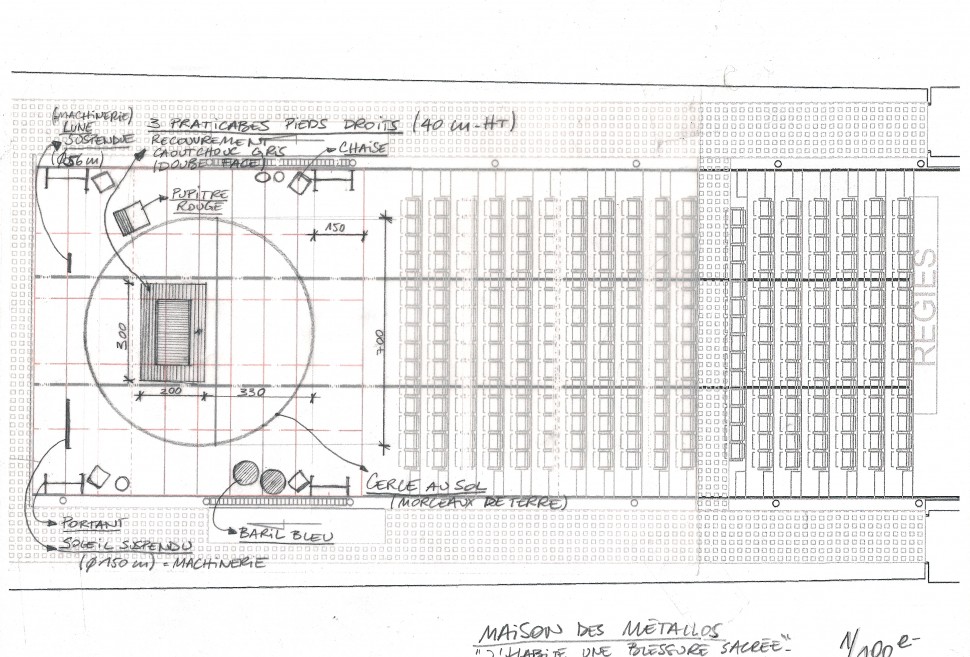 (MACHINERIE)
LUNE
SUSPENDUE
3 PRATICABES PIEDS DROITS (40 cm-HT)
RECOUVREMENT
CAOUTCHOUC GRIS
(DOUBLE FACE)
CHAISE
PUPITRE
ROUGE
150
300
700
200
330
RÉGIES
CERCLE AU SOL
(MORCEAUX DE TERRE)
PORTANT
BARIL BLEU
SOLEIL SUSPENDU
(Ø 150 cm) = MACHINERIE
MAISON DES MÉTALLOS
"J'HABITE UNE BLESSURE SACRÉE"
1/100e